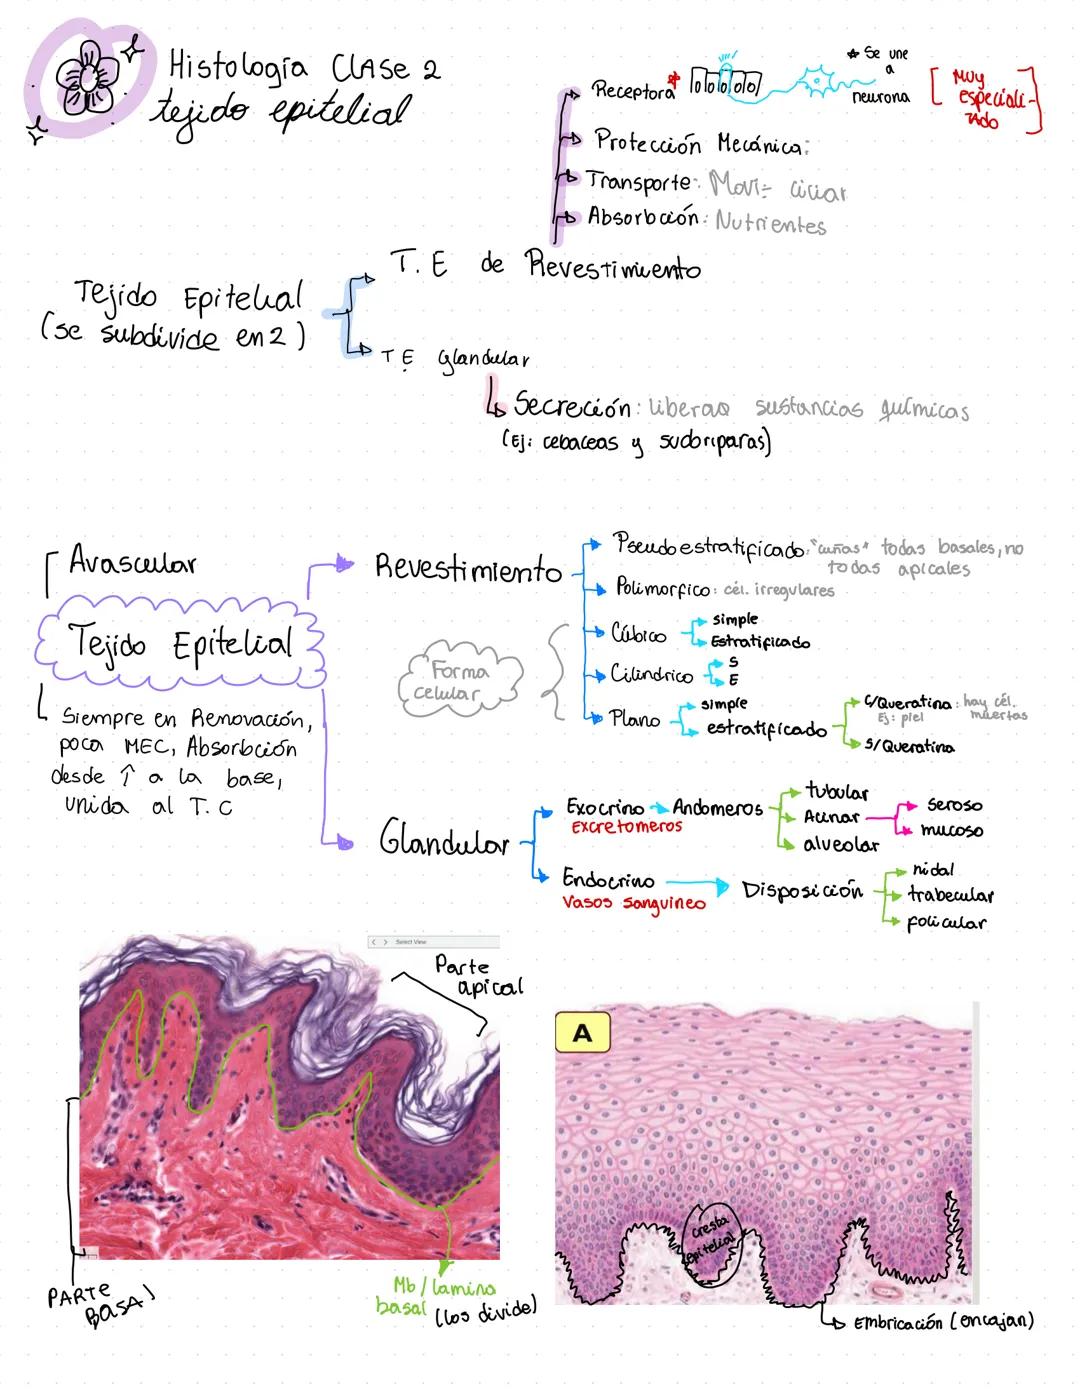 Histología CLASE 2
tejido epitelial
Receptora*
* Se une
a
neurona
[Muy
especiali-
zado]
Protección Mecánica:
Transporte: Movi= ciliar
Absorbción: Nutrientes
T.E de Revestimiento
Tejido Epitelial
(se subdivide en 2)
T.E Glandular
Secreción: liberan sustancias químicas
(Ej: cebaceas y sudoriparas)
Avascular
Tejido Epitelial
Siempre en Renovación,
poca MEC, Absorbción
desde ↑ a la base,
unida al T.C
Revestimiento
Pseudoestratificado: "cuñas" todas basales, no
todas apicales
Polimorfico: cél. irregulares
Forma
celular
Cúbico
simple
Estratificado
Cilindrico
S
E
Plano
simple
estratificado
C/Queratina: hay cél.
Ej: piel muertas
S/Queratina
Glandular
Exocrino
Excretomeros
Andomeros
tubular
Acinar
alveolar
Seroso
mucoso
Endocrino
Vasos sanguineo
Disposición
nidal
trabecular
folicular
Select View
Parte
apical
PARTE
BASAl
Mb/lamina
basal (los divide)
A
cresta
epitelial
Embricación (encajan)